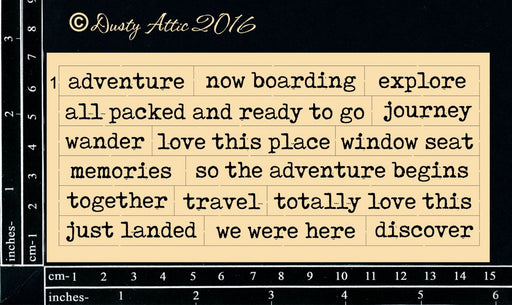 ©Dusty Attic 2016
1 adventure now boarding explore
all packed and ready to go journey
wander love this place window seat
memories so the adventure begins
together travel totally love this
just landed we were here discover
cm- 1 2 3 4 5 6 7 8 9 10 11 12 13 14 15
inches- 1 2 3 4 5 6
cm-1 2 3 4 5 6 7 8
inches- 1 2 3